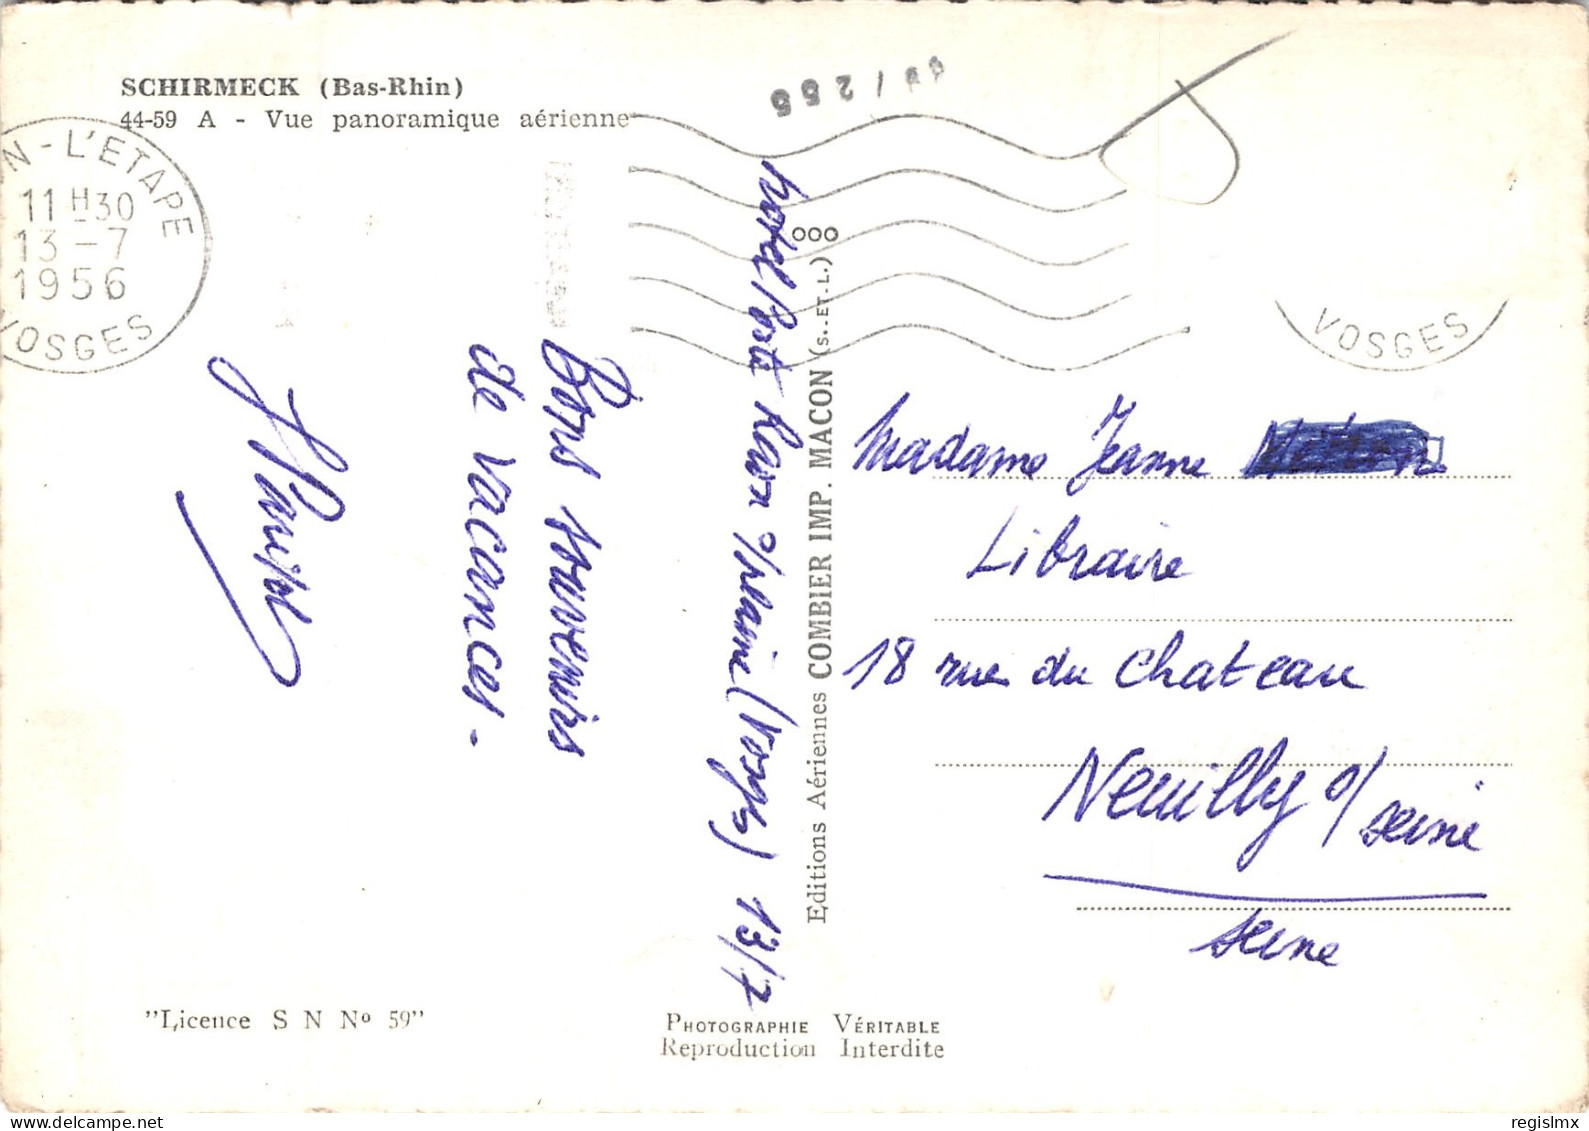 SCHIRMECK (Bas-Rhin)
44-59 A - Vue panoramique aérienne
N-L'ETAPE
11 H 30
13 - 7
1956
VOSGES
VOSGES
Bons souvenirs
de vacances.
hotel Porte Raon s/plaine (Vosges) 13/7
Editions Aériennes COMBIER IMP. MACON (S.-ET-L.)
Madame Jeanne
Libraire
18 rue du chateau
Neuilly s/ seine
seine
"Licence S N Nº 59"
PHOTOGRAPHIE VÉRITABLE
Reproduction Interdite
regislmx